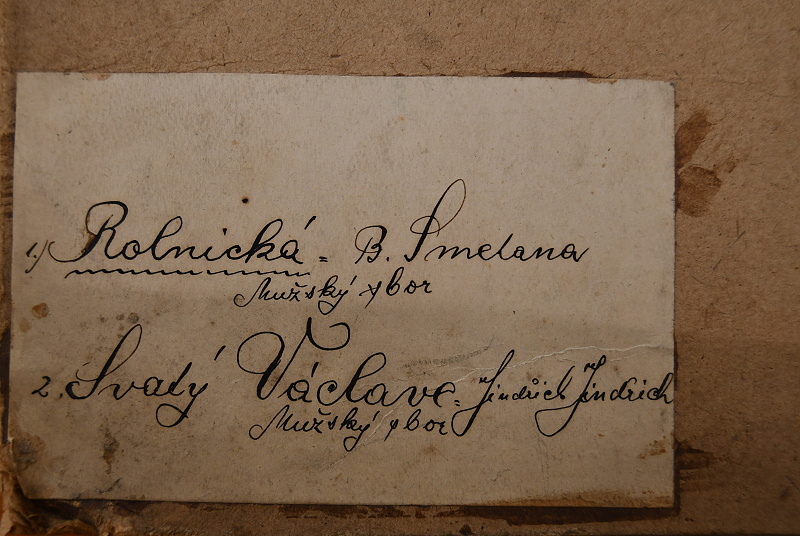 1.) Rolnická = B. Smetana
Mužský sbor
2. Svatý Václave = Jindřich Jindřich
Mužský sbor